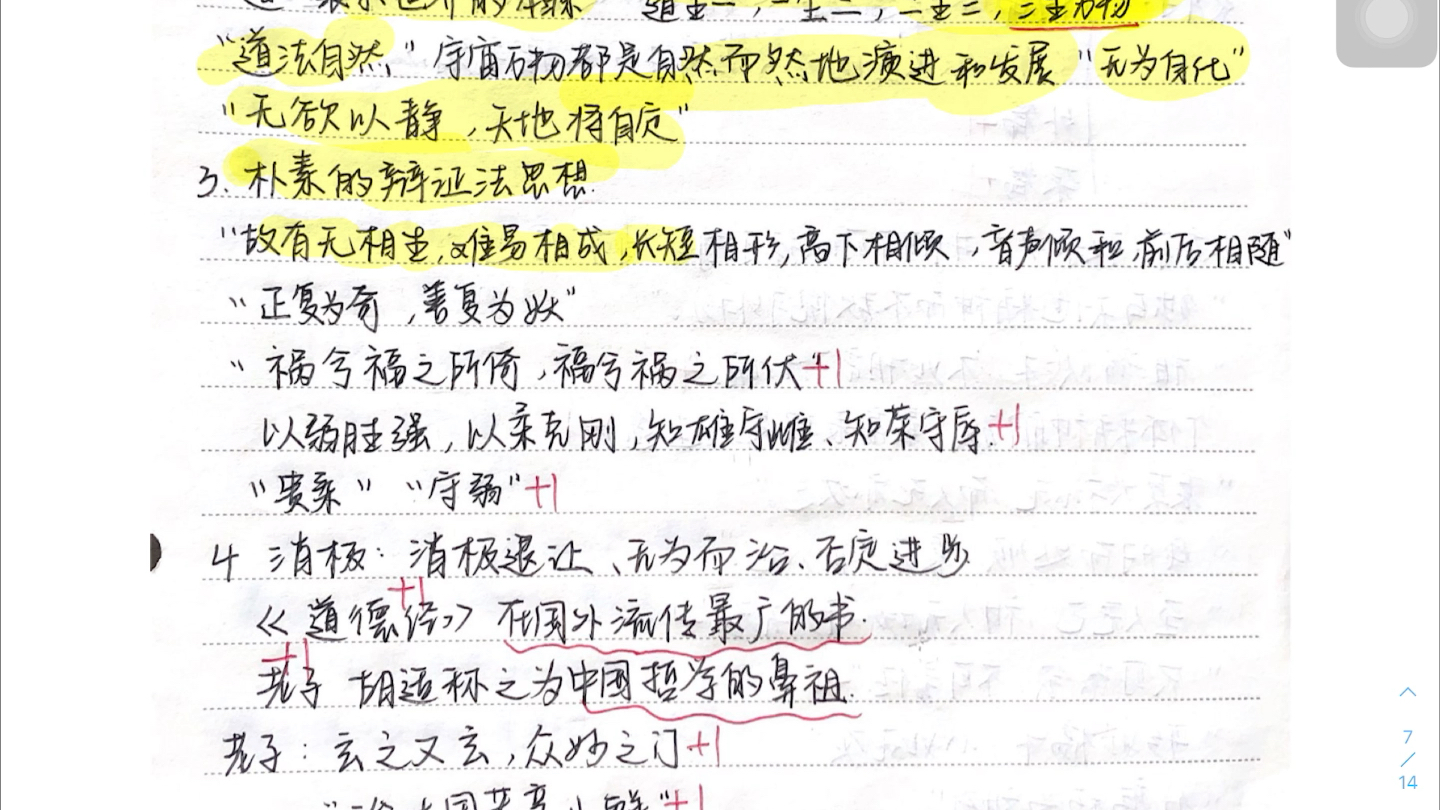 道生一，一生二，二生三，三生万物
"道法自然"宇宙万物都是自然而然地演进和发展 "无为自化"
"无欲以静，天地将自定"
3. 朴素的辩证法思想.
"故有无相生，难易相成，长短相形，高下相倾，音声倾和，前后相随"
"正复为奇，善复为妖"
"祸兮福之所倚，福兮祸之所伏"+1
以弱胜强，以柔克刚，知雄守雌、知荣守辱.+1
"贵柔" "守弱"+1
4 消极：消极退让、无为而治、否定进步
+1
《道德经》在国外流传最广的书.
+1
老子 胡适称之为中国哲学的鼻祖.
老子：玄之又玄，众妙之门+1
+1
7
/
14